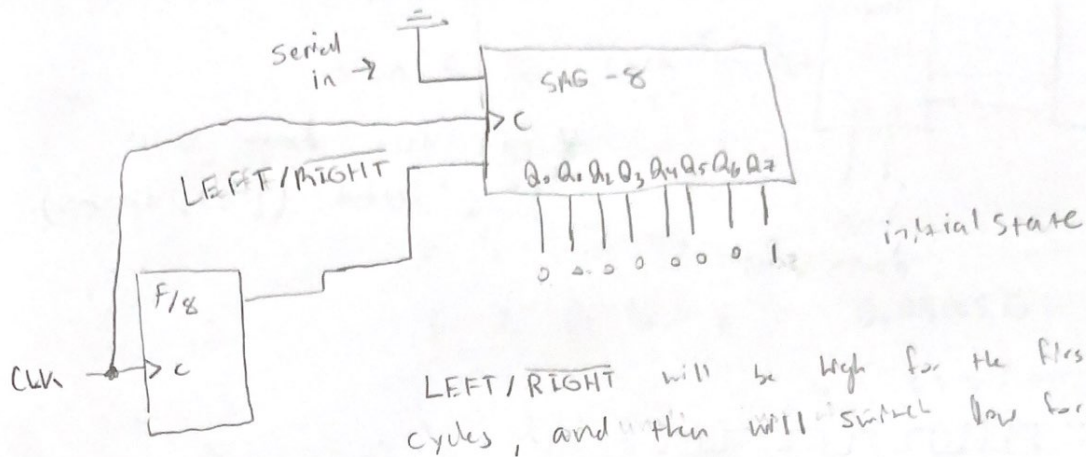 serial
in →
SRG-8
> C
LEFT/RIGHT
Q0 Q1 Q2 Q3 Q4 Q5 Q6 Q7
0 0 0 0 0 0 0 1
initial state
F/8
CLK
> C
LEFT/RIGHT will be high for the firs
cycles, and then will switch low for